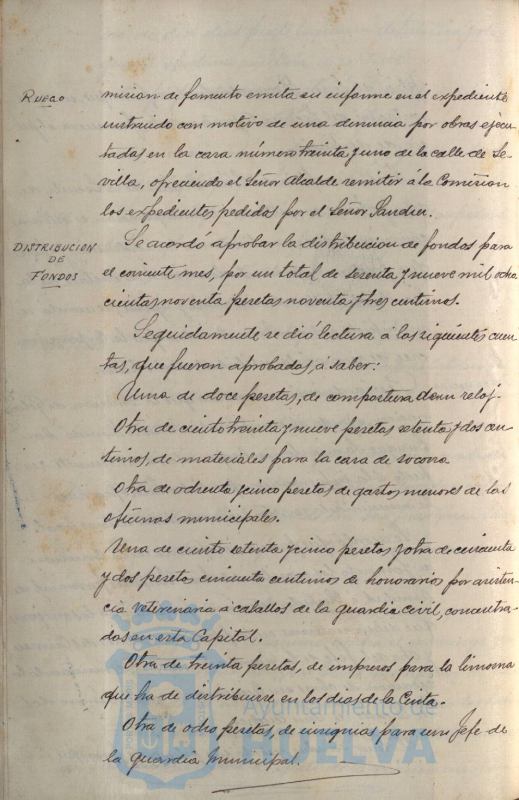 RUEGO
mision de fomento emita su informe en el expediente
instruido con motivo de una denuncia por obras ejecu-
tadas en la casa número treinta y uno de la calle de Se-
villa, ofreciendo el Señor Alcalde remitir á la Comision
los expedientes pedidos por el Señor
DISTRIBUCION
DE
FONDOS
Se acordó aprobar la distribucion de fondos para
el corriente mes, por un total de sesenta y nueve mil ocho
cientas noventa pesetas noventa y tres centimos.
Seguidamente se dió lectura a las siguientes cuen
tas, que fueron aprobadas, á saber:
Una de doce pesetas, de compostura de un reloj.
Otra de ciento treinta y nueve pesetas setenta y dos cen
timos, de materiales para la casa de socorro
Otra de ochenta y cinco pesetas de gastos menores de las
oficinas municipales.
Una de ciento setenta y cinco pesetas y otra de cincuenta
y dos pesetas cincuenta centimos de honorarios por asisten-
cia veterinaria a caballos de la guardia civil, concentra-
dos en esta Capital.
Otra de treinta pesetas, de impresos para la limosna
que ha de distribuirse en los dias de la Cinta.
Otra de ocho pesetas, de insignias para un Jefe de
la guardia Municipal.
Ayuntamiento de
HUELVA